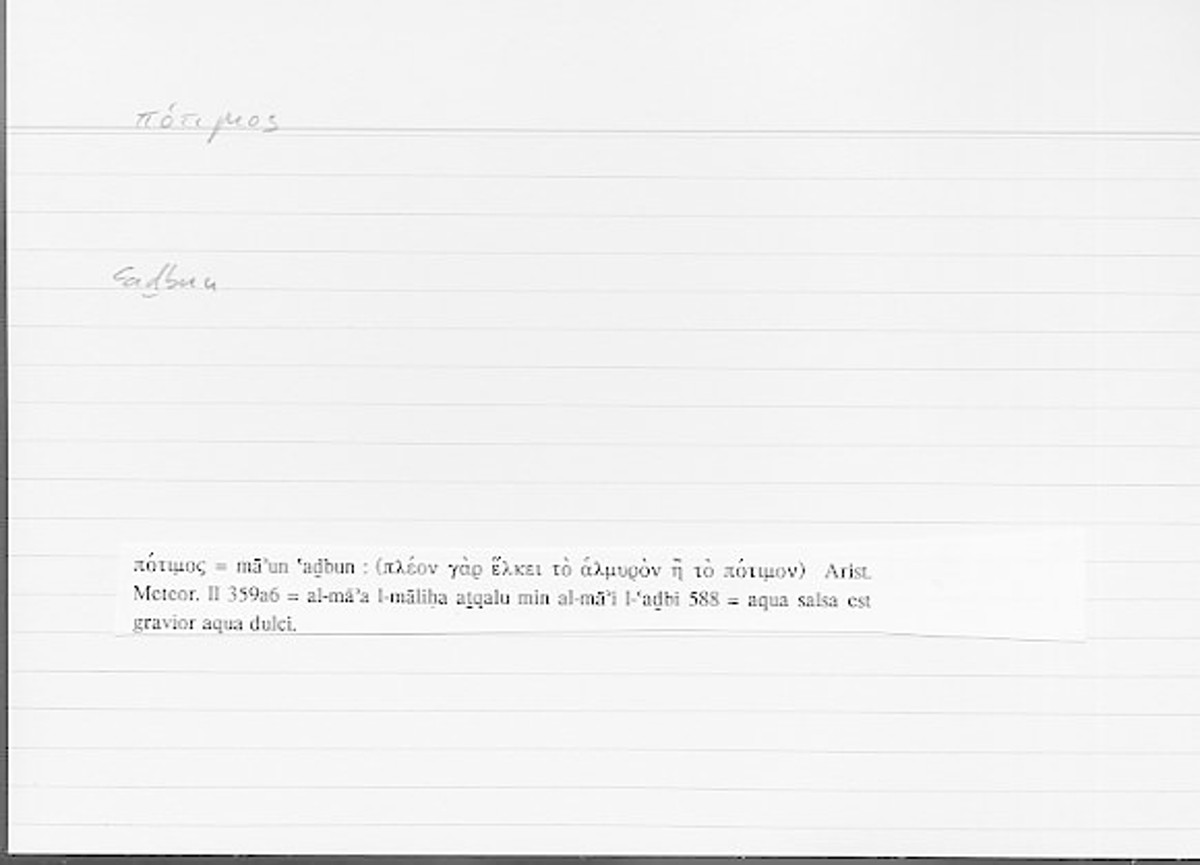 πότιμος
ʿaḏbun
πότιμος = māʾun ʿaḏbun : (πλέον γὰρ ἕλκει τὸ ἁλμυρὸν ἢ τὸ πότιμον) Arist.
Meteor. II 359a6 = al-māʾa l-māliḥa aṯqalu min al-māʾi l-ʿaḏbi 588 = aqua salsa est
gravior aqua dulci.